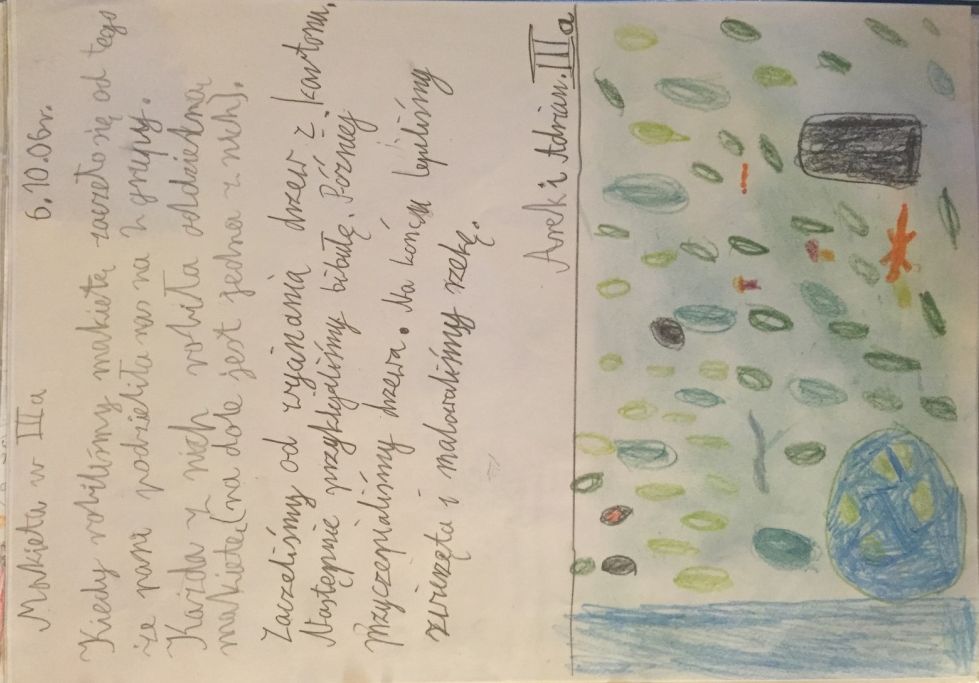 Makieta w IIIa 6.10.06r.
Kiedy robiliśmy makietę zaczeło się od tego
że pani podzieliła nas na 2 grupy.
Każda z nich robiła oddzielną
makietę (na dole jest jedna z nich).
Zaczeliśmy od wycinania drzew z kartonu.
Następnie przyklejaliśmy bibułę. Później
przyczepialiśmy drzewa. Na końcu lepiliśmy
zwirzęta i malowaliśmy rzekę.
Arek i Adrian. IIIa